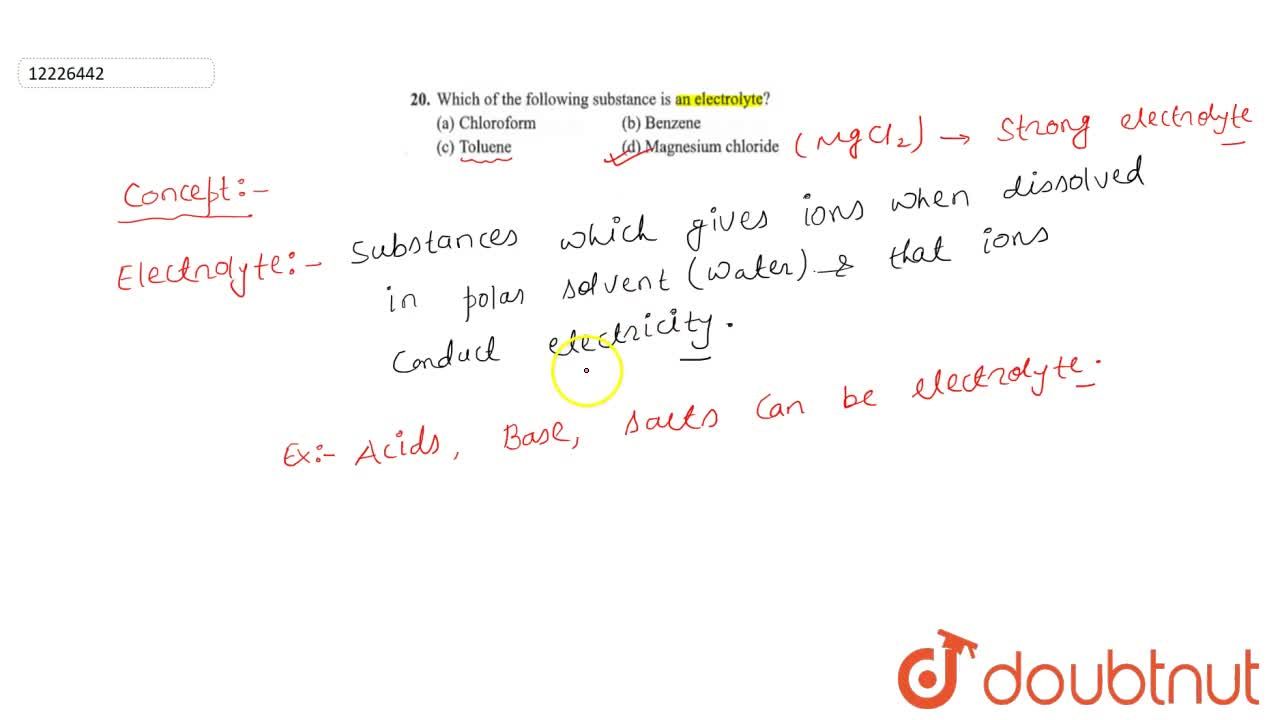 12226442
20. Which of the following substance is an electrolyte?
(a) Chloroform (b) Benzene
(c) Toluene (d) Magnesium chloride (MgCl2) → Strong electrolyte
Concept:-
Electrolyte:- Substances which gives ions when dissolved
in polar solvent (water) & that ions
conduct electricity.
Ex:- Acids, Base, salts can be electrolyte.
doubtnut